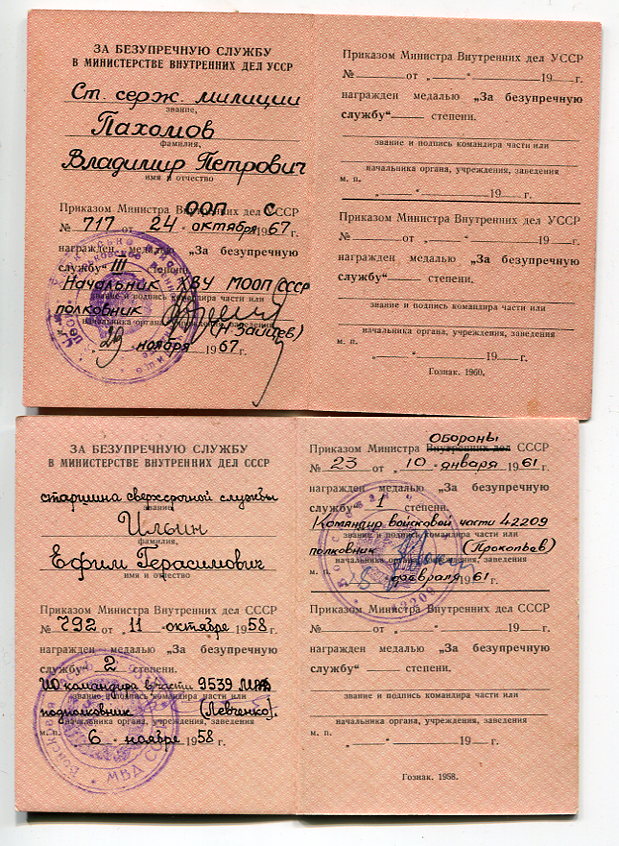 ЗА БЕЗУПРЕЧНУЮ СЛУЖБУ
В МИНИСТЕРСТВЕ ВНУТРЕННИХ ДЕЛ УССР
Ст. серж. милиции
звание,
Пахомов
фамилия,
Владимир Петрович
имя и отчество
ООП С
Приказом Министра Внутренних дел УССР
№ 717 от „24„ октября 1967 г.
награжден медалью „За безупречную
службу“ III степени.
Начальник ХВУ МООП СССР
звание и подпись командира части или
полковник
начальника органа, учреждения, заведения
„29„ ноября 1967 г.
Приказом Министра Внутренних дел УССР
№ — от „ — “ — 19 — г.
награжден медалью „За безупречную
службу“ — степени.
звание и подпись командира части или
начальника органа, учреждения, заведения
м. п. „ — “ — 19 — г.
Приказом Министра Внутренних дел УССР
№ — от „ — “ — 19 — г.
награжден медалью „За безупречную
службу“ — степени.
звание и подпись командира части или
начальника органа, учреждения, заведения
м. п. „ — “ — 19 — г.
Гознак. 1960.
ЗА БЕЗУПРЕЧНУЮ СЛУЖБУ
В МИНИСТЕРСТВЕ ВНУТРЕННИХ ДЕЛ СССР
старшина сверхсрочной службы
звание
Ильин
фамилия,
Ефим Герасимович
имя и отчество
Приказом Министра Внутренних дел СССР
№ 792 от „11„ октября 1958 г.
награжден медалью „За безупречную
службу“ 2 степени.
ИО командира в/части 9539
звание и подпись командира части или
подполковник (Левченко).
начальника органа, учреждения, заведения
м. п. „6„ ноября 1958 г.
МВД СССР
Обороны
Приказом Министра Внутренних дел СССР
№ 23 от „10„ января 1961 г.
награжден медалью „За безупречную
службу“ 1 степени.
Командир войсковой части 42209
звание и подпись командира части или
полковник (Прокопьев)
начальника органа, учреждения, заведения
м. п. „5„ февраля 1961 г.
Приказом Министра Внутренних дел СССР
№ — от „ — “ — 19 — г.
награжден медалью „За безупречную
службу“ — степени.
звание и подпись командира части или
начальника органа, учреждения, заведения
м. п. „ — “ — 19 — г.
Гознак. 1958.